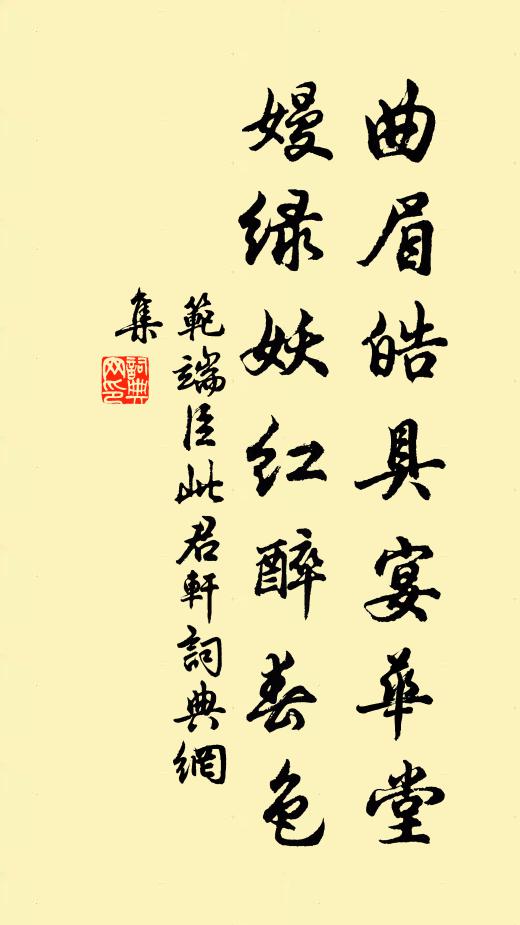 曲眉皓具宴华堂
嫚绿妖红醉春色
範端臣此君軒詞典網
集
詞典
网印